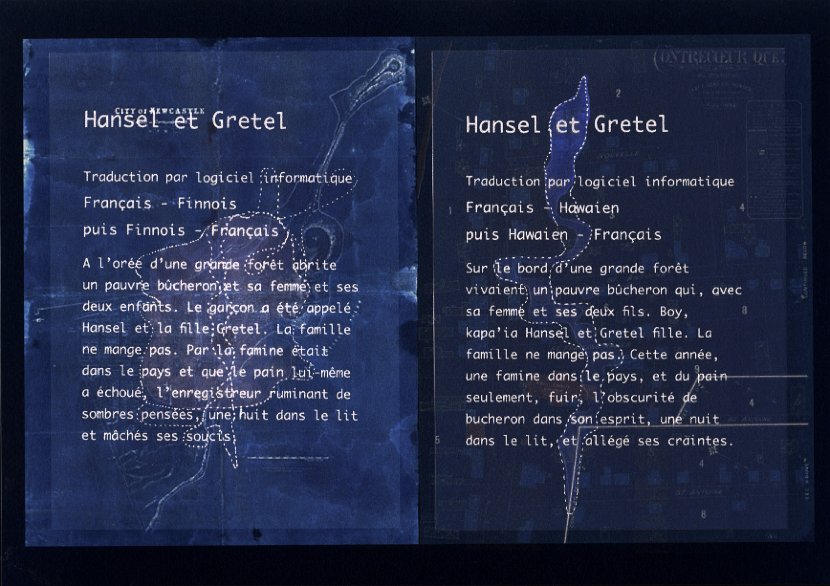 CITY OF NEWCASTLE
Hansel et Gretel
Traduction par logiciel informatique
Français - Finnois
puis Finnois - Français
A l'orée d'une grande forêt abrite
un pauvre bûcheron et sa femme et ses
deux enfants. Le garçon a été appelé
Hansel et la fille Gretel. La famille
ne mange pas. Par la famine était
dans le pays et que le pain lui-même
a échoué, l'enregistreur ruminant de
sombres pensées, une nuit dans le lit
et mâchés ses soucis.
CONTRECŒUR QUE.
Hansel et Gretel
Traduction par logiciel informatique
Français - Hawaien
puis Hawaien - Français
Sur le bord d'une grande forêt
vivaient un pauvre bûcheron qui, avec
sa femme et ses deux fils. Boy,
kapa'ia Hansel et Gretel fille. La
famille ne mange pas. Cette année,
une famine dans le pays, et du pain
seulement, fuir, l'obscurité de
bucheron dans son esprit, une nuit
dans le lit, et allégé ses craintes.
2
1
4
8
9
4
5
4
8